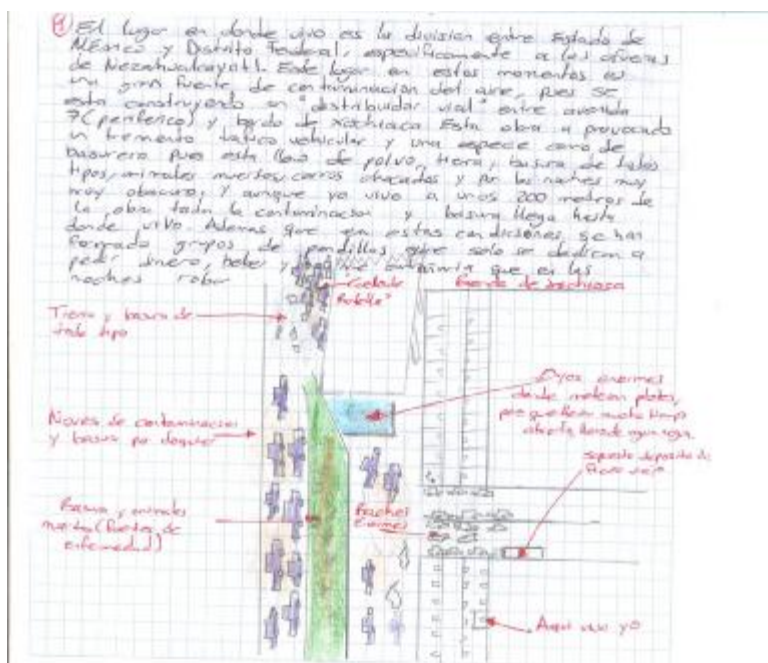 El lugar en donde vivo es la division entre Estado de
México y Distrito Federal, especificamente a las afueras
de Nezahualcoyotl. Este lugar en estos momentos es
una gran fuente de contaminación del aire, pues se
esta construyendo un "distribuidor vial" entre avenida
7 (periferico) y bordo de xochiaca Esta obra a provocado
un tremento tráfico vehicular y una especie como de
basurero pues esta lleno de polvo, tierra, basura de todos
tipos, animales muertos, carros chocados y por las noches muy
muy obscuro, y aunque yo vivo a unos 200 metros de
la obra toda la contaminacion y basura llega hasta
donde vivo. Ademas que en estas condiciones, se han
formado grupos de pandillas que solo se dedican a
pedir dinero, beber y que en las
noches roban
Bordo de xochiaca
Tierra y basura de
todo tipo
enormes
donde
Nubes de contaminacion
y basura por doquier
supuesto deposito de
Basura y animales
muertos (fuentes de
enfermedad)
Baches
Enormes
Aqui vivo yo